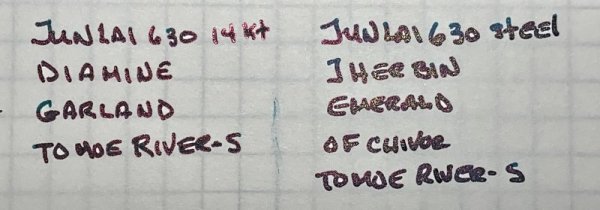 JUNLAI 630 14 Kt
DIAMINE
GARLAND
TOMOE RIVER-S
JUNLAI 630 steel
J HERBIN
EMERALD
OF CHIVOR
TOMOE RIVER-S